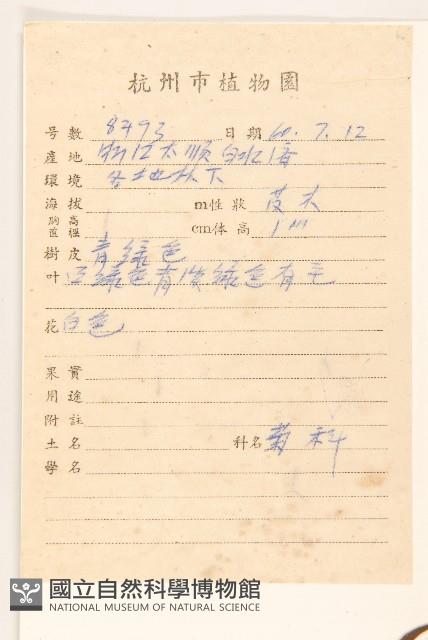 杭州市植物園
号數 8493 日期 60. 7. 12
產地 浙江太順
環境 林下
海拔 m性狀 草本
胸高直徑 cm体高 1m
樹皮 青綠色
叶 正綠色背淡綠色有毛
花 白色
果實
用途
附註
土名 科名 菊科
學名
國立自然科學博物館
NATIONAL MUSEUM OF NATURAL SCIENCE